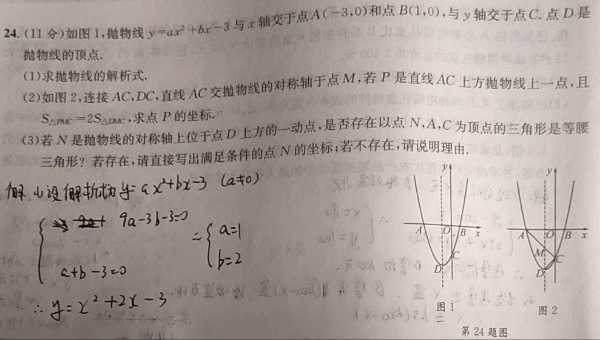 24.(11分)如图1,抛物线y=ax²+bx-3与x轴交于点A(-3,0)和点B(1,0),与y轴交于点C.点D是
抛物线的顶点.
(1)求抛物线的解析式.
(2)如图2,连接AC,DC,直线AC交抛物线的对称轴于点M,若P是直线AC上方抛物线上一点,且
S△PMC=2S△DMC,求点P的坐标.
(3)若N是抛物线的对称轴上位于点D上方的一动点,是否存在以点N,A,C为顶点的三角形是等腰
三角形?若存在,请直接写出满足条件的点N的坐标;若不存在,请说明理由.
解(1)设解析式为y=ax²+bx-3 (a≠0)
9a-3b-3=0
a+b-3=0
=
a=1
b=2
∴y=x²+2x-3
y
A O B x
C
D
图1
y
A O B x
M
C
D
图2
第24题图